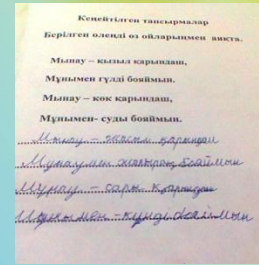 Кеңейтілген тапсырмалар
Берілген өлеңді өз ойларыңмен аяқта.
Мынау – қызыл қарындаш,
Мұнымен гүлді бояймын.
Мынау – көк қарындаш,
Мұнымен- суды бояймын.
Мынау – жасыл қарындаш
жапырақ бояймын
Мұнау – сары қарындаш
мен – күнді бояймын